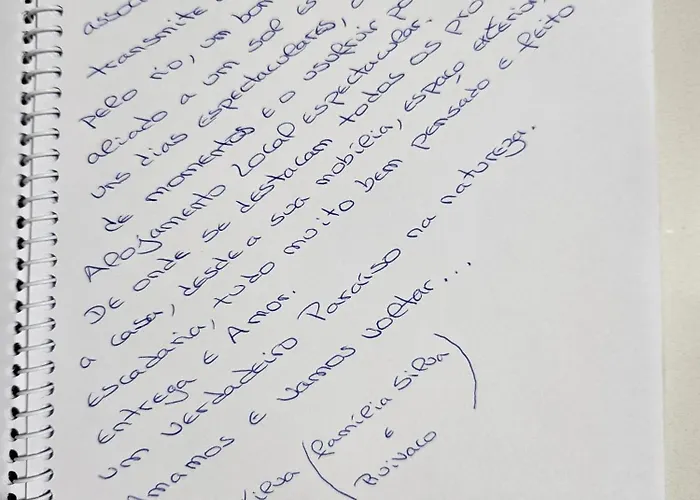 transmite
pelo rio, um bom
aliado a um sol es
uns dias espectaculares, 
de momentos e o usufruir
Alojamento Local espectacular.
De onde se destacam todos os pro
a casa, desde a sua mobília, espaço exterior,
escadaria, tudo muito bem pensado e feito
entrega e Amor.
um verdadeiro Paraíso na natureza.
Amamos e vamos voltar...
(família Silva
e